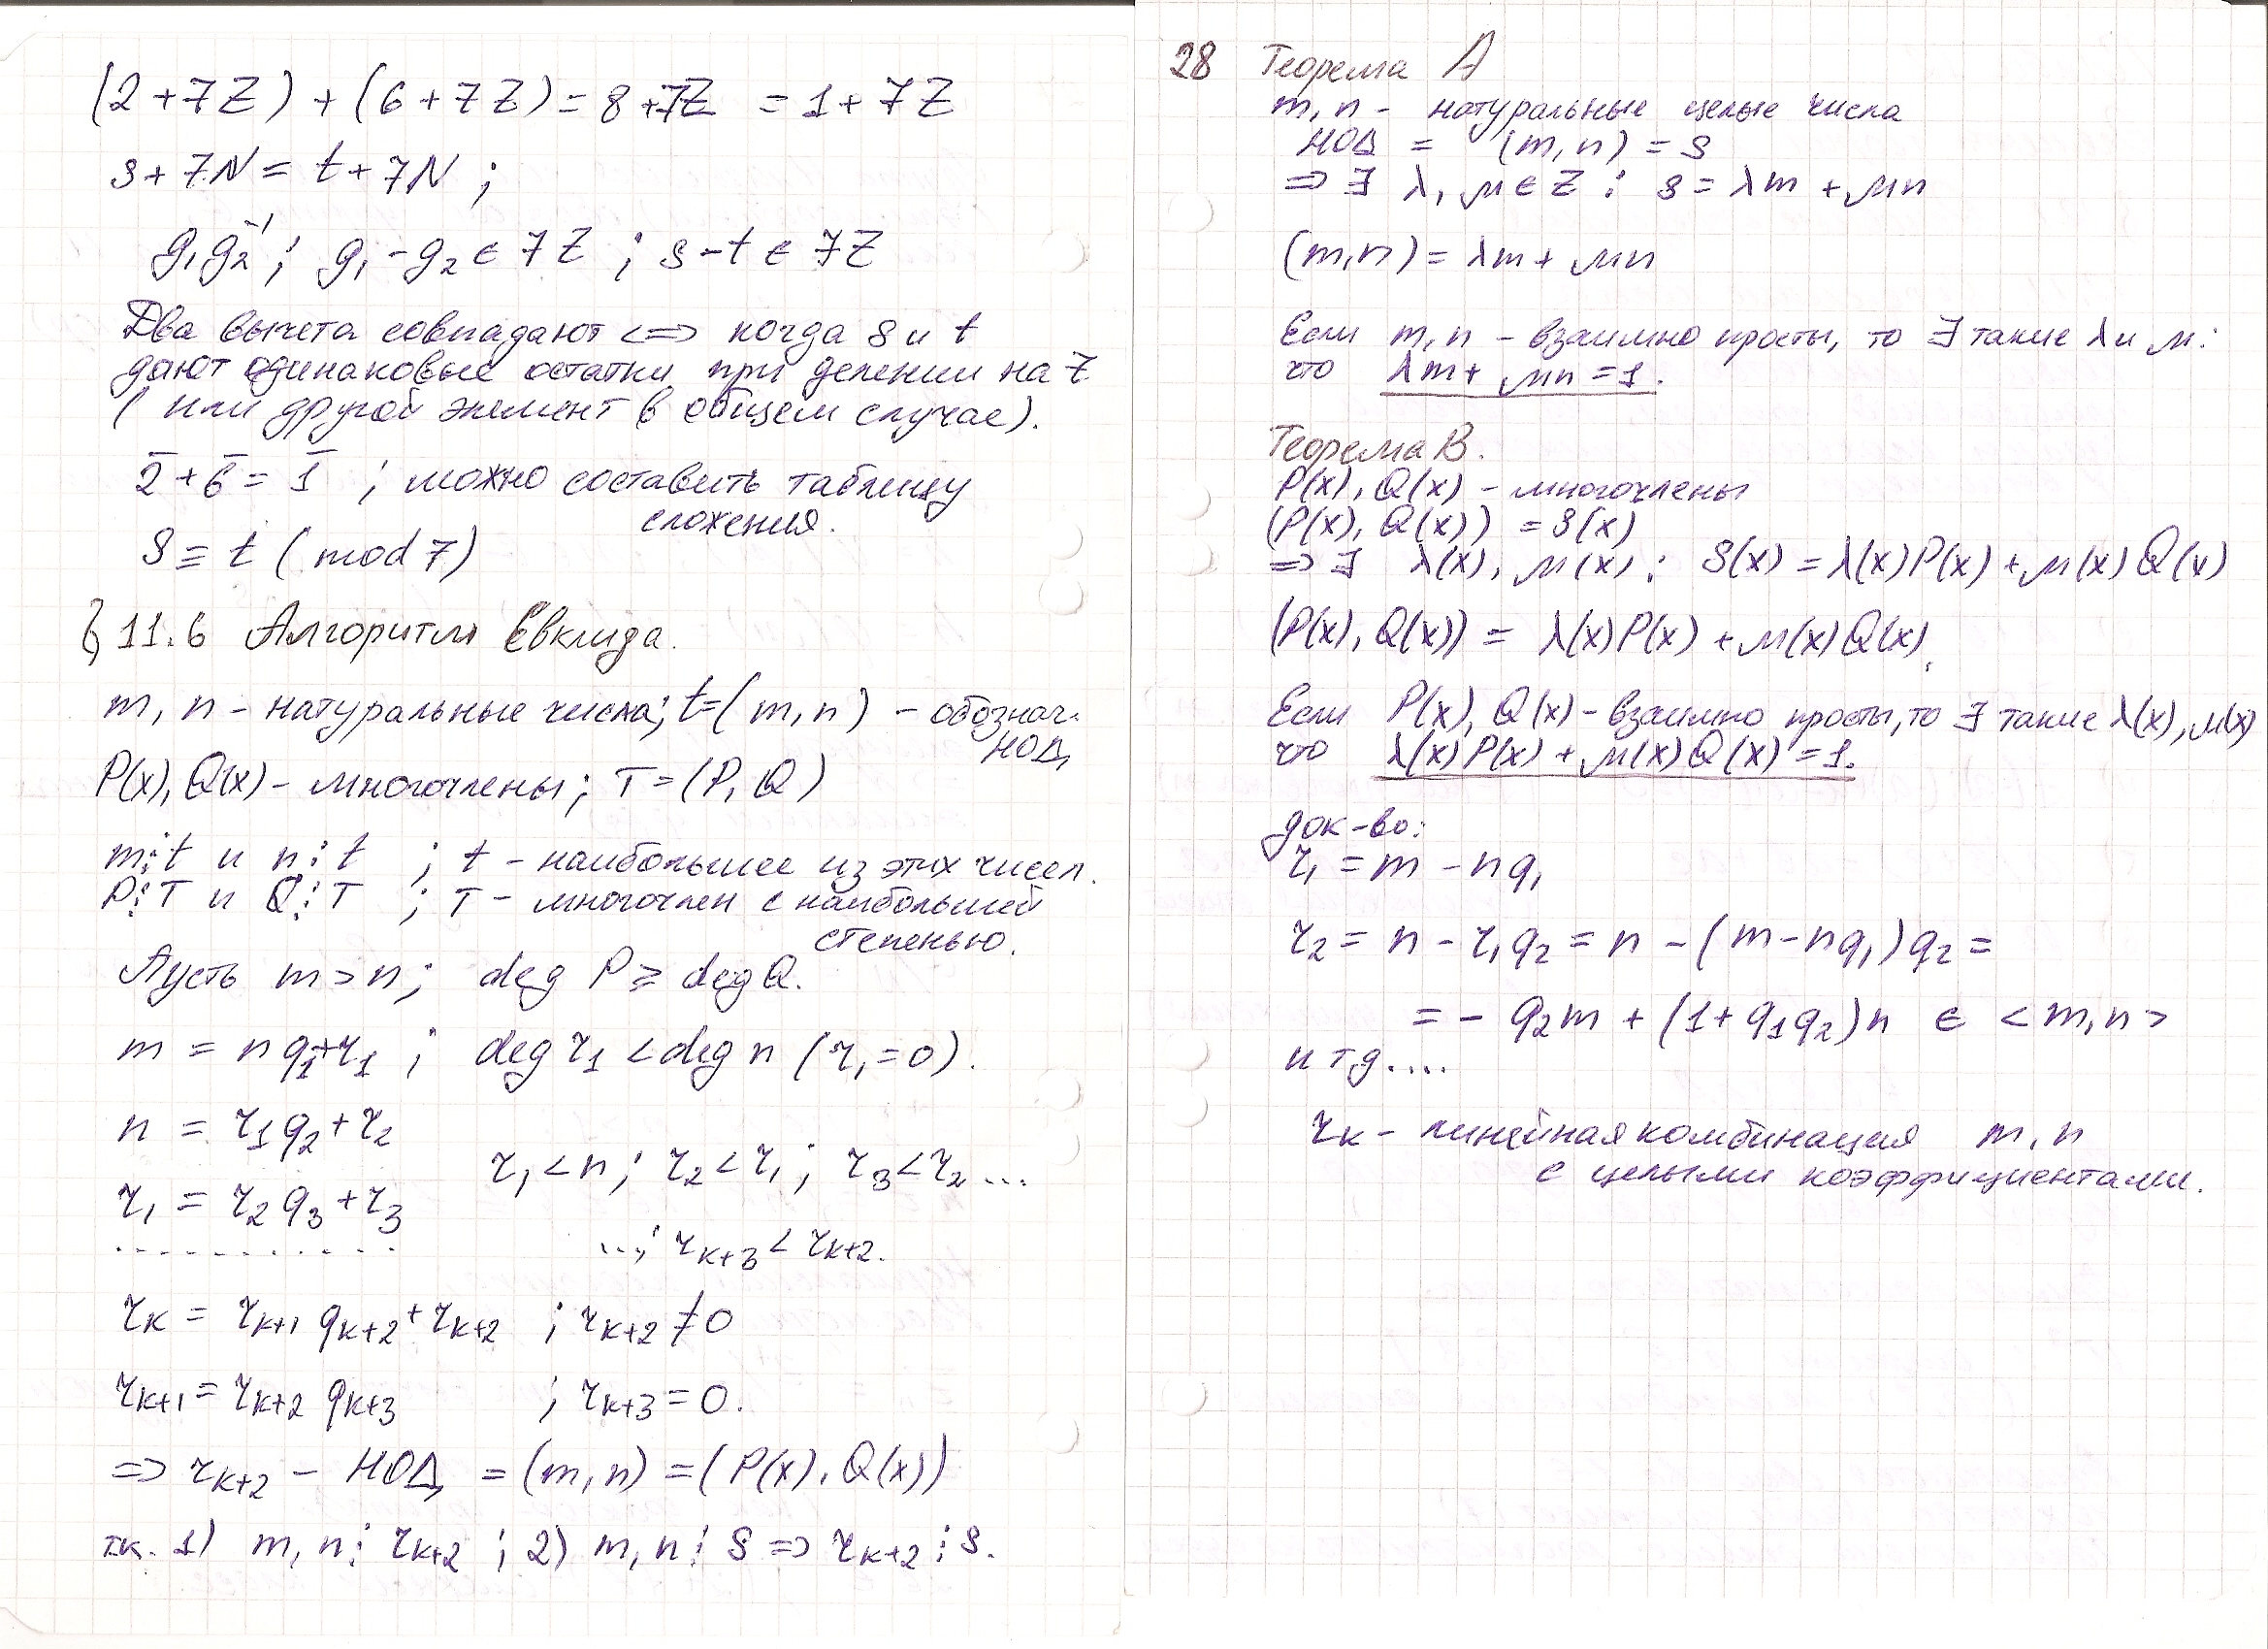 (2+7Z) + (6+7Z) = 8+7Z = 1+7Z
s+7N = t+7N ;
g₁g₂⁻¹ ; g₁-g₂ ∈ 7Z ; s-t ∈ 7Z
Два вычета совпадают <=> когда s и t
дают одинаковые остатки при делении на 7
(или другой элемент в общем случае).
2̄ + 6̄ = 1̄ ; можно составить таблицу
сложения.
s ≡ t (mod 7)
§ 11.6 Алгоритм Евклида.
m, n - натуральные числа; t=(m, n) - обознач.
НОД
P(x), Q(x) - многочлены; T=(P, Q)
m⋮t и n⋮t ; t - наибольшее из этих чисел.
P⋮T и Q⋮T ; T - многочлен с наибольшей
степенью.
Пусть m>n; deg P ≥ deg Q.
m = nq₁+r₁ ; deg r₁ < deg n (r₁=0).
n = r₁q₂+r₂
r₁<n; r₂<r₁; r₃<r₂...
r₁ = r₂q₃+r₃
............ ...; rₖ₊₃<rₖ₊₂.
rₖ = rₖ₊₁ qₖ₊₂+rₖ₊₂ ; rₖ₊₂≠0
rₖ₊₁=rₖ₊₂ qₖ₊₃ ; rₖ₊₃=0.
=> rₖ₊₂ - НОД = (m, n) = (P(x), Q(x))
т.к. 1) m, n⋮rₖ₊₂ ; 2) m, n⋮s => rₖ₊₂⋮s.
28 Теорема A
m, n - натуральные целые числа
НОД = (m, n) = s
=> ∃ λ, μ ∈ Z : s = λm + μn
(m,n) = λm + μn
Если m, n - взаимно просты, то ∃ такие λ и μ:
что λm + μn = 1.
Теорема B.
P(x), Q(x) - многочлены
(P(x), Q(x)) = S(x)
=> ∃ λ(x), μ(x) : S(x) = λ(x)P(x) + μ(x)Q(x)
(P(x), Q(x)) = λ(x)P(x) + μ(x)Q(x).
Если P(x), Q(x) - взаимно просты, то ∃ такие λ(x), μ(x)
что λ(x)P(x) + μ(x)Q(x) = 1.
док-во:
r₁ = m - nq₁
r₂ = n - r₁q₂ = n - (m-nq₁)q₂ =
= - q₂m + (1+q₁q₂)n ∈ <m,n>
и т.д....
rₖ - линейная комбинация m, n
с целыми коэффициентами.